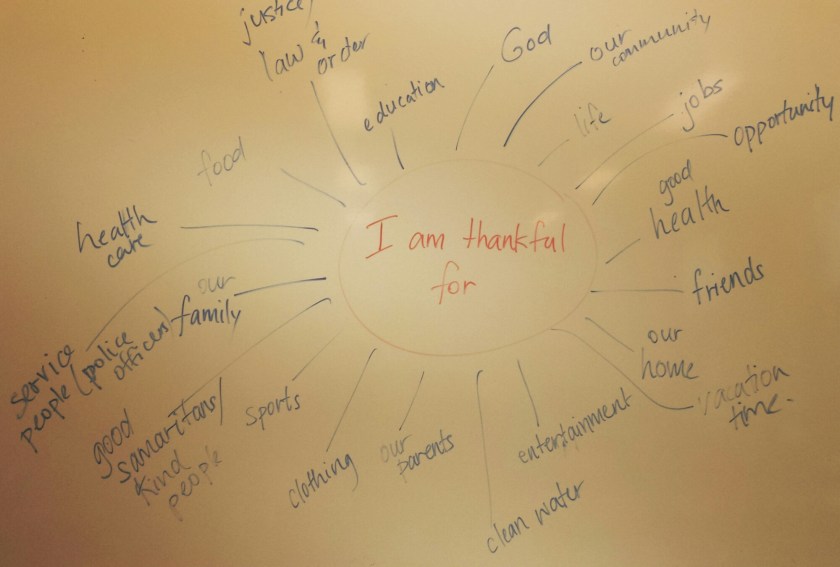 I am thankful
for
justice/
law &
order
education
God
our
community
life
jobs
opportunity
good
health
friends
our
home
vacation
time.
entertainment
clean water
our
parents
clothing
sports
good
samaritans/
kind
people
our
family
service
people (police
officers)
health
care
food